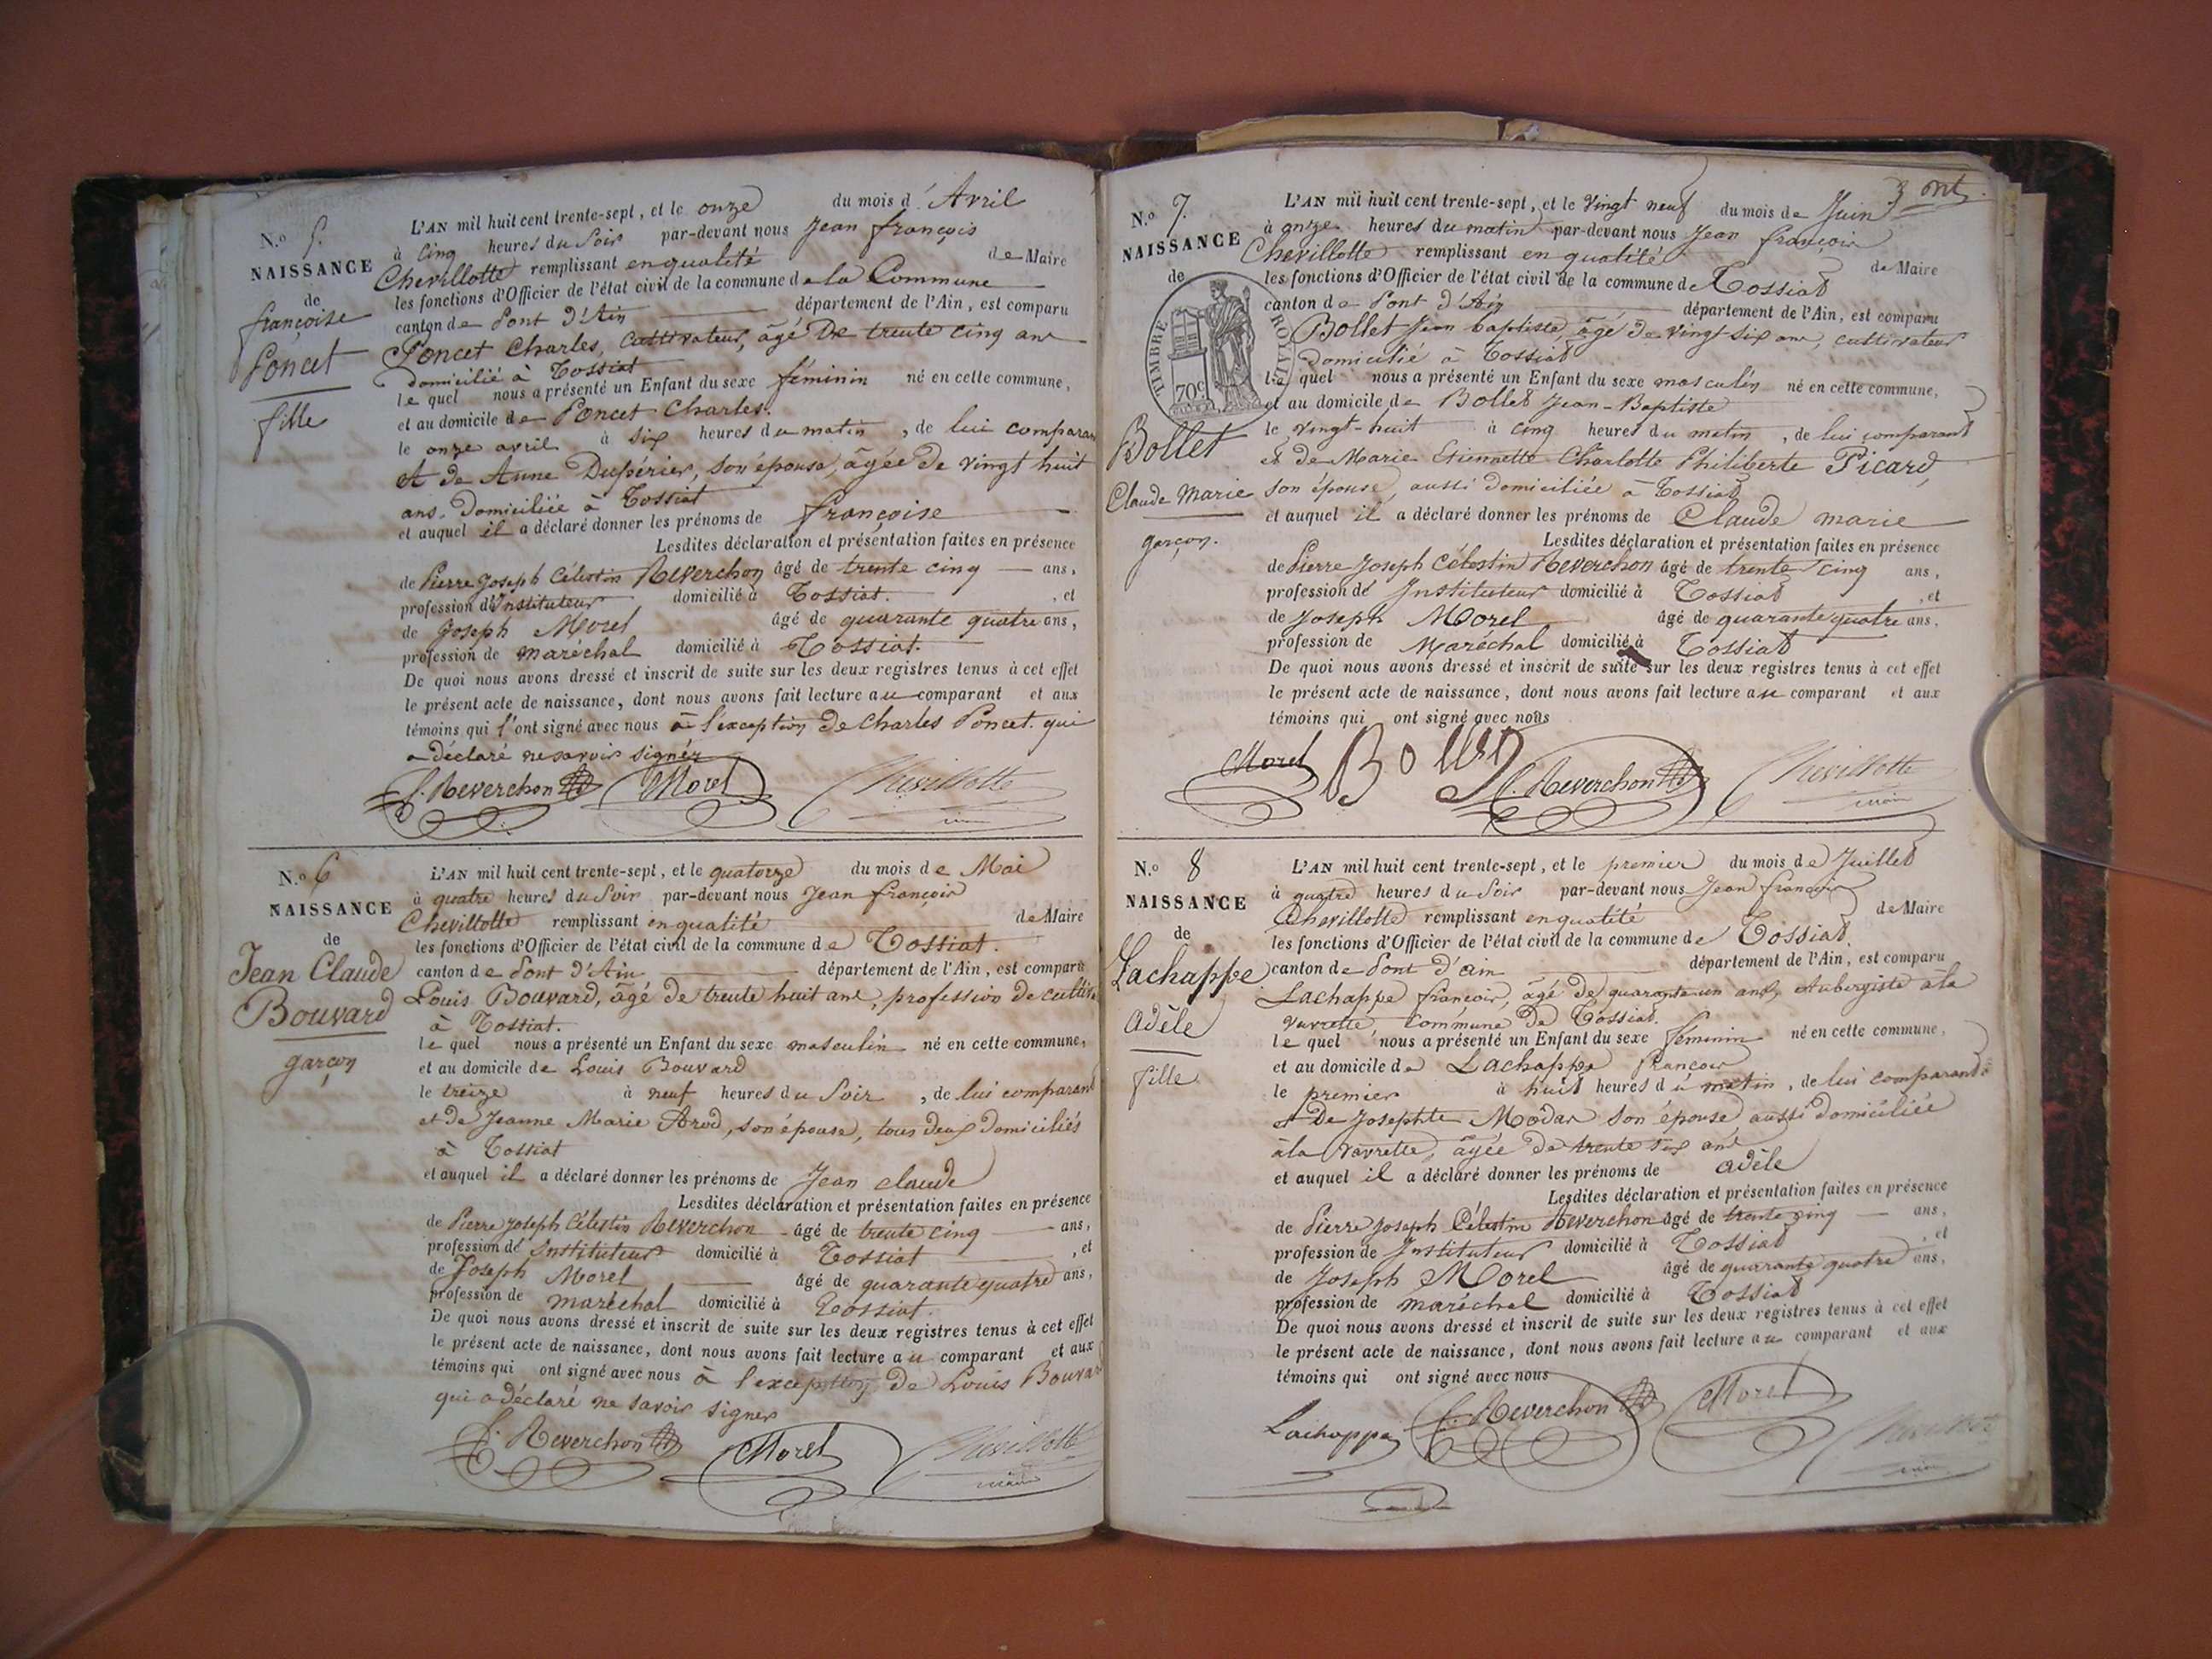 N.º 5.
NAISSANCE
de
françoise
Poncet
fille
L'AN mil huit cent trente-sept, et le onze du mois d'Avril
à cinq heures du soir par-devant nous Jean françois
Chevillotte remplissant en qualité de Maire
les fonctions d'Officier de l'état civil de la commune de la Commune
canton de Pont d'Ain département de l'Ain, est comparu
Poncet Charles, cultivateur, âgé De trente cinq ans
domicilié à Tossiat
le quel nous a présenté un Enfant du sexe féminin né en cette commune,
et au domicile de Poncet Charles.
le onze avril à six heures du matin, de lui comparan
et de Anne Dupérier, son épouse, âgée de vingt huit
ans. Domiciliée à Tossiat
et auquel il a déclaré donner les prénoms de françoise
Lesdites déclaration et présentation faites en présence
de Pierre Joseph Célestin Reverchon âgé de trente cinq ans,
profession d'Instituteur domicilié à Tossiat. , et
de Joseph Morel âgé de quarante quatre ans,
profession de maréchal domicilié à Tossiat.
De quoi nous avons dressé et inscrit de suite sur les deux registres tenus à cet effet
le présent acte de naissance, dont nous avons fait lecture au comparant et aux
témoins qui l'ont signé avec nous à l'exception de Charles Poncet. qui
a déclaré ne savoir signer
P. Reverchon Morel Chevillotte
maire
N.º 6
NAISSANCE
de
Jean Claude
Bouvard
garçon
L'AN mil huit cent trente-sept, et le quatorze du mois de Mai
à quatre heures du soir par-devant nous Jean françois
Chevillotte remplissant en qualité de Maire
les fonctions d'Officier de l'état civil de la commune de Tossiat.
canton de Pont d'Ain département de l'Ain, est comparu
Louis Bouvard, âgé de trente huit ans, profession de cultiv
à Tossiat.
le quel nous a présenté un Enfant du sexe masculin né en cette commune,
et au domicile de Louis Bouvard
le treize à neuf heures du soir, de lui comparant
et de Jeanne Marie Arod, son épouse, tous deux domiciliés
à Tossiat
et auquel il a déclaré donner les prénoms de Jean claude
Lesdites déclaration et présentation faites en présence
de Pierre Joseph Célestin Reverchon âgé de trente cinq ans,
profession de Instituteur domicilié à Tossiat , et
de Joseph Morel âgé de quarante quatre ans,
profession de maréchal domicilié à Tossiat.
De quoi nous avons dressé et inscrit de suite sur les deux registres tenus à cet effet
le présent acte de naissance, dont nous avons fait lecture au comparant et aux
témoins qui ont signé avec nous à l'exception de Louis Bouvar
qui a déclaré ne savoir signer
P. Reverchon Morel Chevillotte
maire
3
N.º 7.
NAISSANCE
de
TIMBRE ROYAL
70c
Bollet
Claude Marie
garçon.
L'AN mil huit cent trente-sept, et le vingt neuf du mois de Juin
à onze heures du matin par-devant nous Jean françois
Chevillotte remplissant en qualité de Maire
les fonctions d'Officier de l'état civil de la commune de Tossiat
canton de Pont d'Ain département de l'Ain, est comparu
Bollet Jean baptiste, âgé de vingt-six ans, cultivateur
domicilié à Tossiat
le quel nous a présenté un Enfant du sexe masculin né en cette commune,
et au domicile de Bollet Jean-Baptiste
le vingt-huit à cinq heures du matin, de lui comparant
et de Marie Etiennette Charlotte Philiberte Picard,
son épouse, aussi domiciliée à Tossiat
et auquel il a déclaré donner les prénoms de Claude marie
Lesdites déclaration et présentation faites en présence
de Pierre Joseph Célestin Reverchon âgé de trente cinq ans,
profession de Instituteur domicilié à Tossiat , et
de Joseph Morel âgé de quarante quatre ans,
profession de Maréchal domicilié à Tossiat
De quoi nous avons dressé et inscrit de suite sur les deux registres tenus à cet effet
le présent acte de naissance, dont nous avons fait lecture au comparant et aux
témoins qui ont signé avec nous
Morel Bollet P. Reverchon Chevillotte
maire
N.º 8
NAISSANCE
de
Lachappe
Adèle
fille
L'AN mil huit cent trente-sept, et le premier du mois de Juillet
à quatre heures du soir par-devant nous Jean françois
Chevillotte remplissant en qualité de Maire
les fonctions d'Officier de l'état civil de la commune de Tossiat.
canton de Pont d'ain département de l'Ain, est comparu
Lachappe françois, âgé de quarante un ans, Aubergiste à la
vavrette, commune De Tossiat.
le quel nous a présenté un Enfant du sexe féminin né en cette commune,
et au domicile de Lachappe françois
le premier à huit heures du matin, de lui comparant
et De Josephte Modas son épouse, aussi domiciliée
à la vavrette, âgée de trente six ans
et auquel il a déclaré donner les prénoms de adèle
Lesdites déclaration et présentation faites en présence
de Pierre Joseph Célestin Reverchon âgé de trente cinq ans,
profession de Instituteur domicilié à Tossiat , et
de Joseph Morel âgé de quarante quatre ans,
profession de maréchal domicilié à Tossiat
De quoi nous avons dressé et inscrit de suite sur les deux registres tenus à cet effet
le présent acte de naissance, dont nous avons fait lecture au comparant et aux
témoins qui ont signé avec nous
Lachappe P. Reverchon Morel Chevillotte
maire